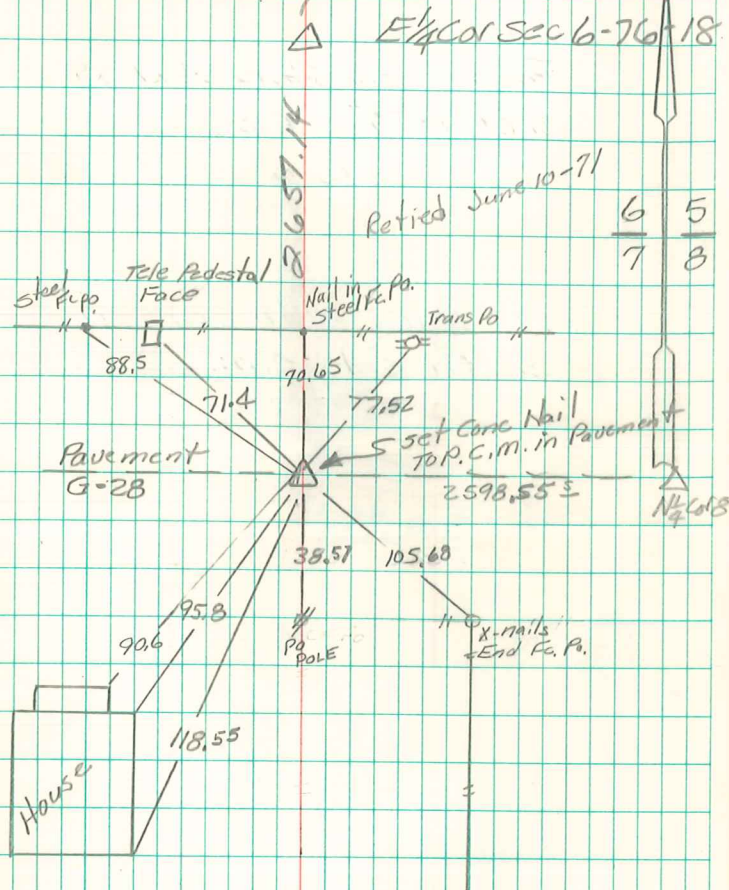 E¼ Cor Sec 6-76-18
2657.14
Retied June 10-71
6 5
7 8
Steel Fc. po.
Tele Pedestal
Face
Nail in
Steel Fc. Po.
Trans Po
88.5
71.4
70.65
77.52
Set Conc Nail
To P.C.M. in Pavement
Pavement
G-28
2598.55 ±
N¼ Cor 8
38.57
105.68
95.8
90.6
Po
POLE
X-nails
End Fc. Po.
118.55
House